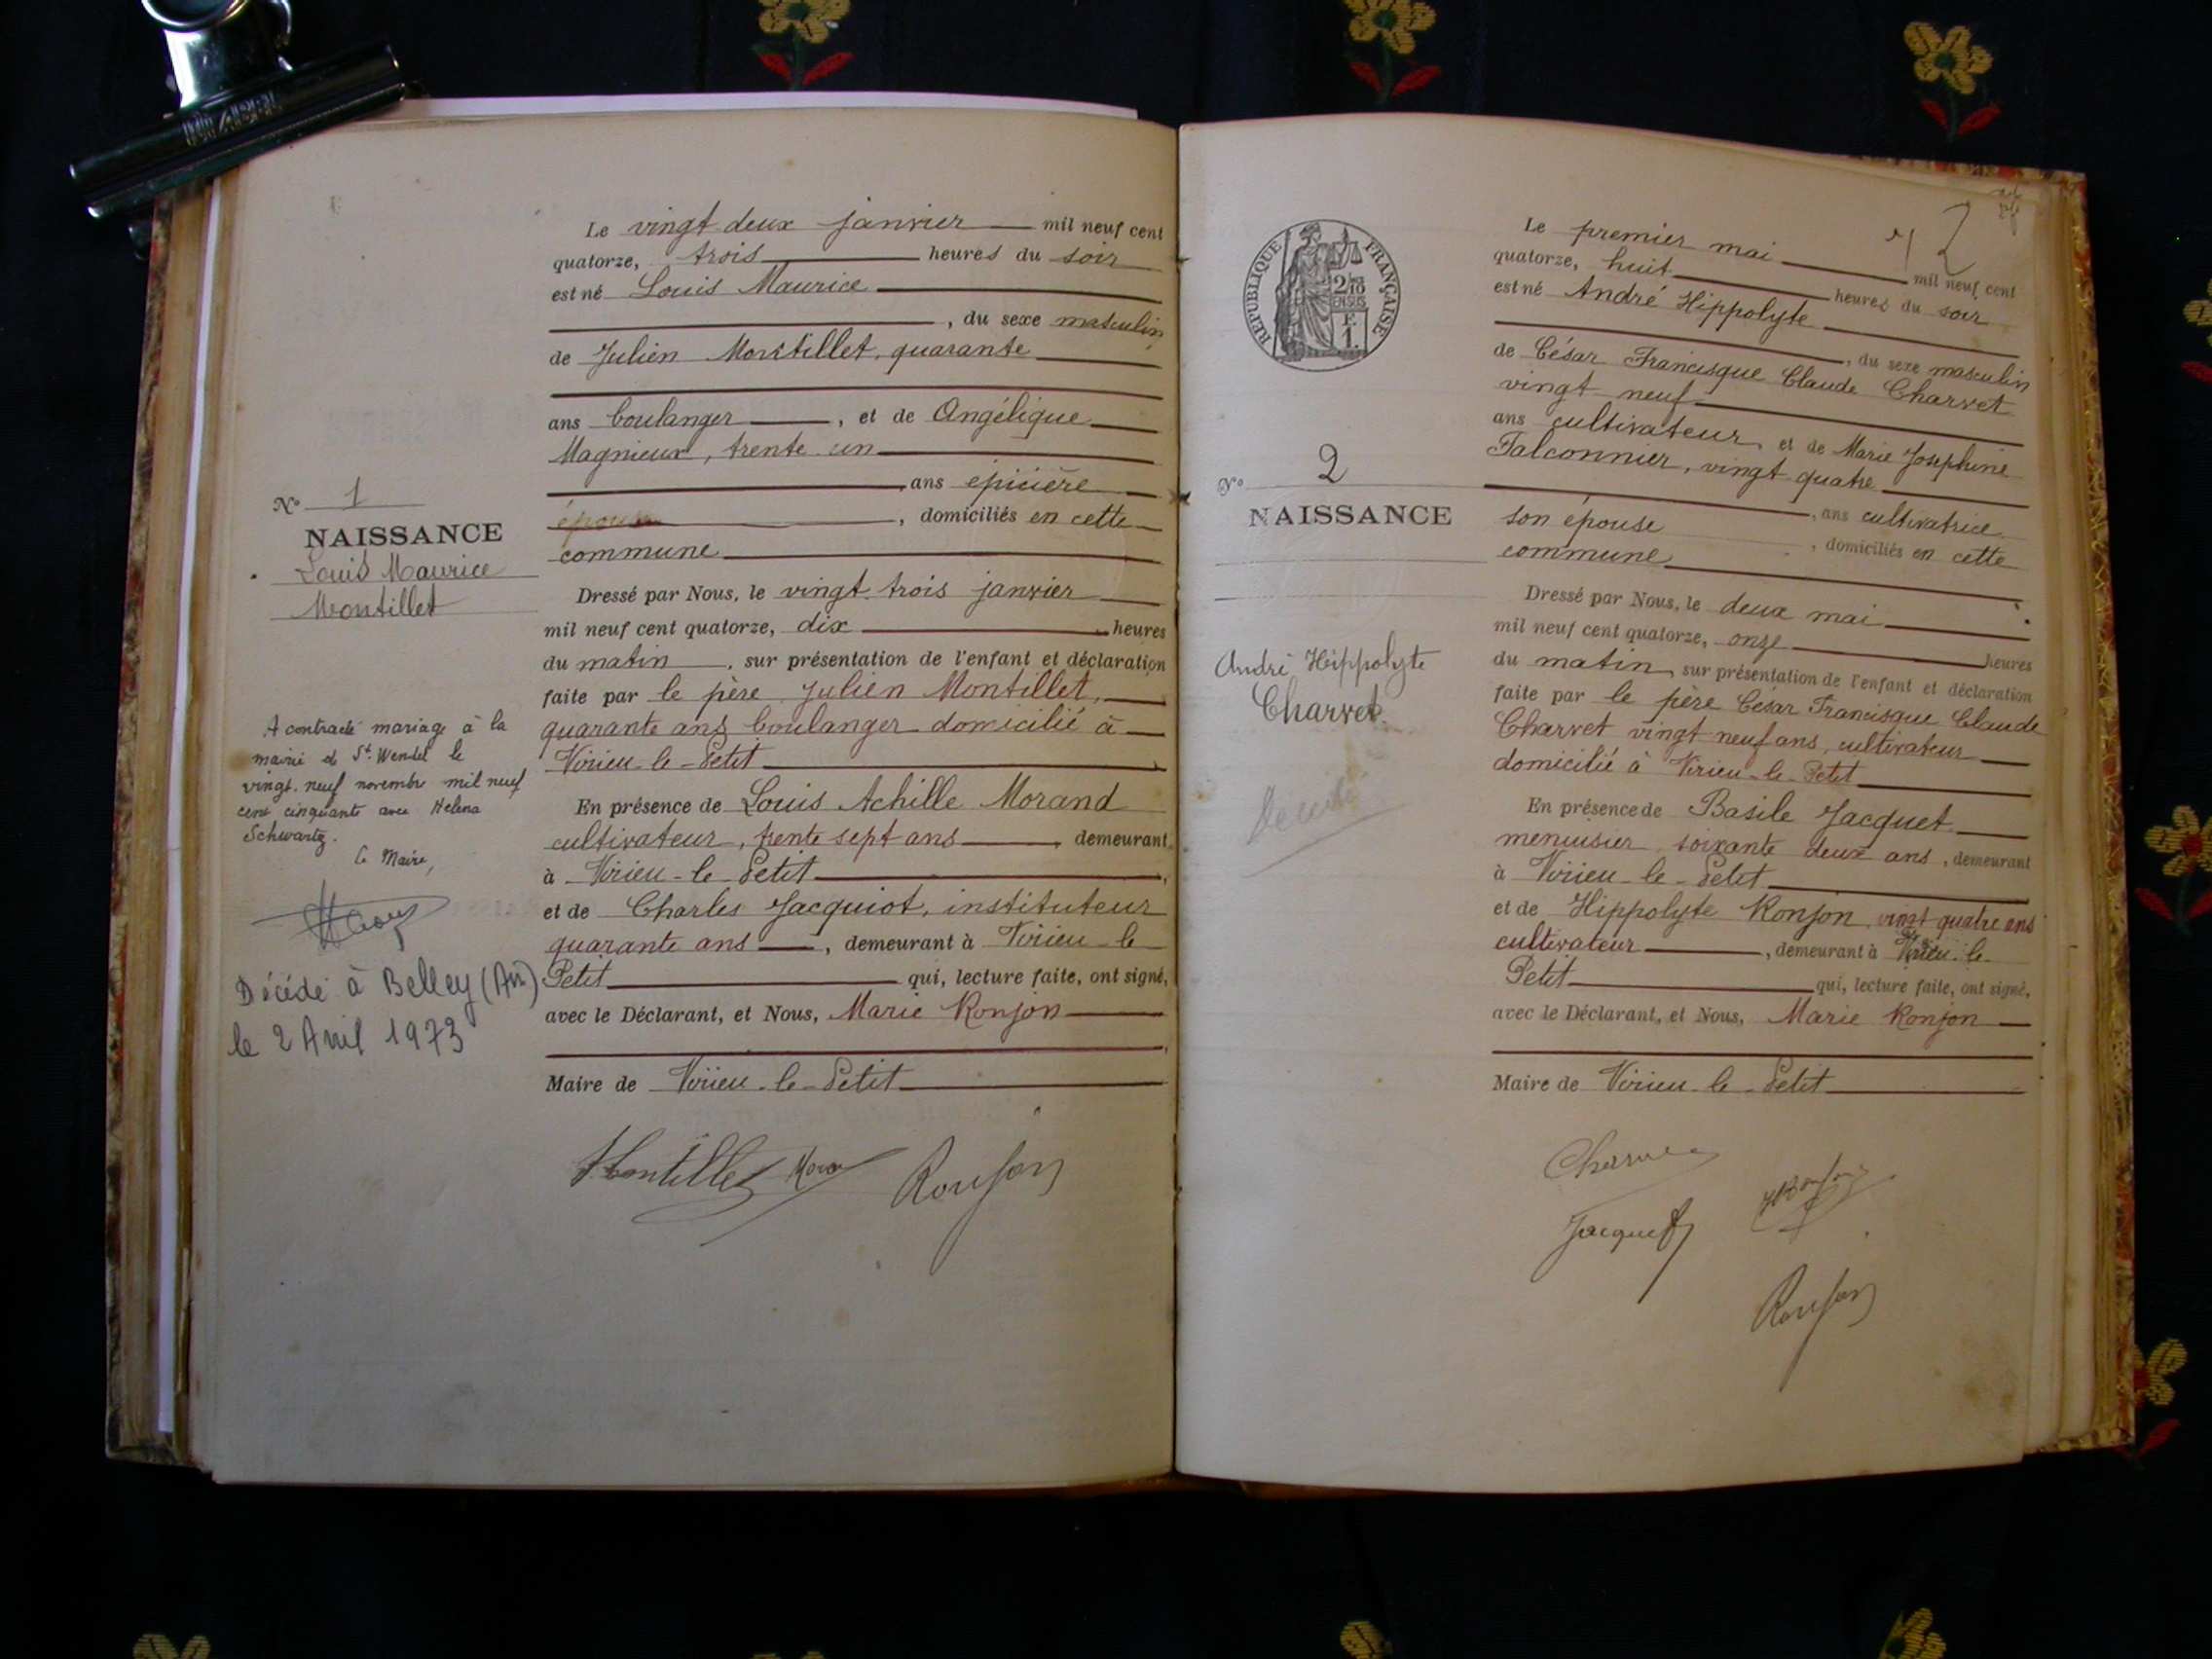 Le vingt deux janvier mil neuf cent
quatorze, trois heures du soir
est né Louis Maurice
, du sexe masculin
de Julien Montillet, quarante
ans boulanger, et de Angélique
Magnieux, trente un
ans épicière
épouse, domiciliés en cette
commune
Dressé par Nous, le vingt trois janvier
mil neuf cent quatorze, dix heures
du matin, sur présentation de l'enfant et déclaration
faite par le père Julien Montillet,
quarante ans boulanger domicilié à
Virieu-le-Petit
En présence de Louis Achille Morand
cultivateur, trente sept ans, demeurant
à Virieu-le-Petit,
et de Charles Jacquiot, instituteur
quarante ans, demeurant à Virieu-le
Petit qui, lecture faite, ont signé,
avec le Déclarant, et Nous, Marie Ronjon
Maire de Virieu-le-Petit
Montillet Ronjon
N° 1
NAISSANCE
Louis Maurice
Montillet
A contracté mariage à la
mairie de St. Wendel le
vingt-neuf novembre mil neuf
cent cinquante avec Helena
Schwartz.
Le Maire,
Décédé à Belley (Ain)
le 2 Avril 1973
2
RÉPUBLIQUE FRANÇAISE
2/10
EN SUS
F.
1.
Le premier mai mil neuf cent
quatorze, huit heures du soir
est né André Hippolyte
, du sexe masculin
de César Francisque Claude Charvet
vingt neuf
ans cultivateur, et de Marie Joséphine
Falconnier, vingt quatre
, ans cultivatrice
son épouse, domiciliés en cette
commune
Dressé par Nous, le deux mai
mil neuf cent quatorze, onze heures
du matin, sur présentation de l'enfant et déclaration
faite par le père César Francisque Claude
Charvet vingt neuf ans, cultivateur
domicilié à Virieu-le-Petit
En présence de Basile Jacquet
menuisier soixante deux ans, demeurant
à Virieu-le-Petit
et de Hippolyte Ronjon vingt quatre ans
cultivateur, demeurant à Virieu-le-
Petit qui, lecture faite, ont signé,
avec le Déclarant, et Nous, Marie Ronjon
Maire de Virieu-le-Petit
Charvet
Jacquet
Ronjon
N° 2
NAISSANCE
André Hippolyte
Charvet